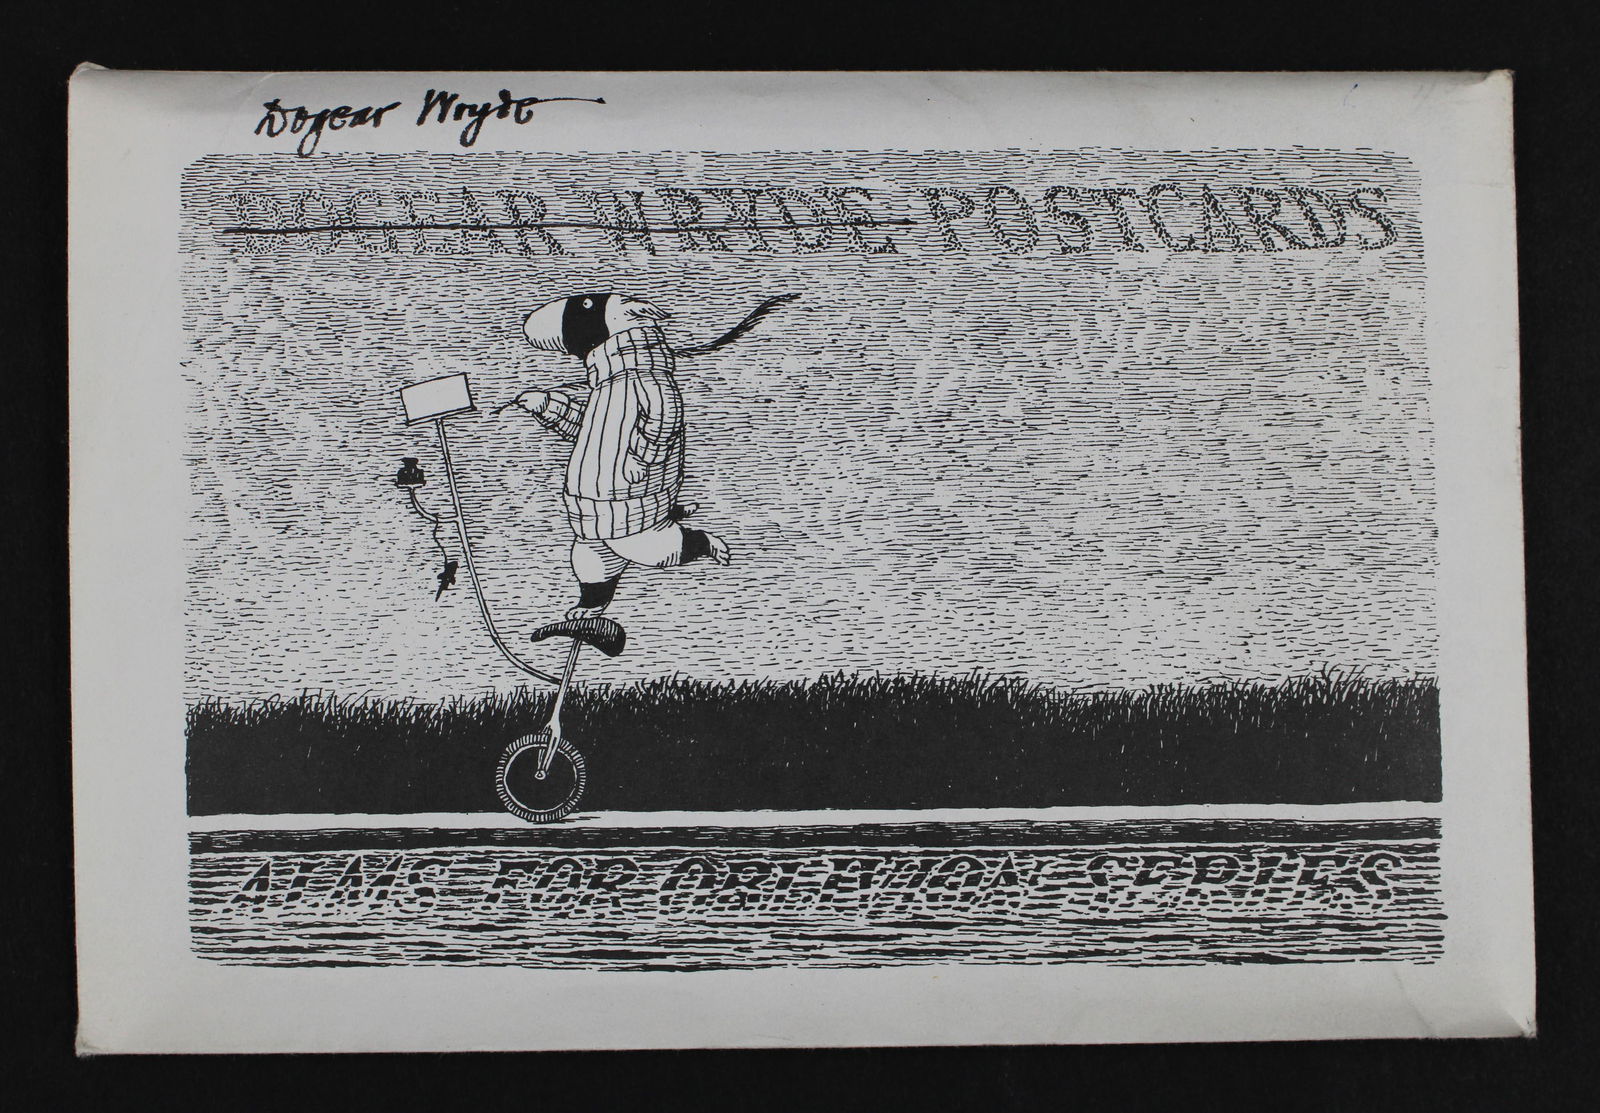 Dogear Wryde
DOGEAR WRYDE POSTCARDS
ALMS FOR OBLIVION SERIES